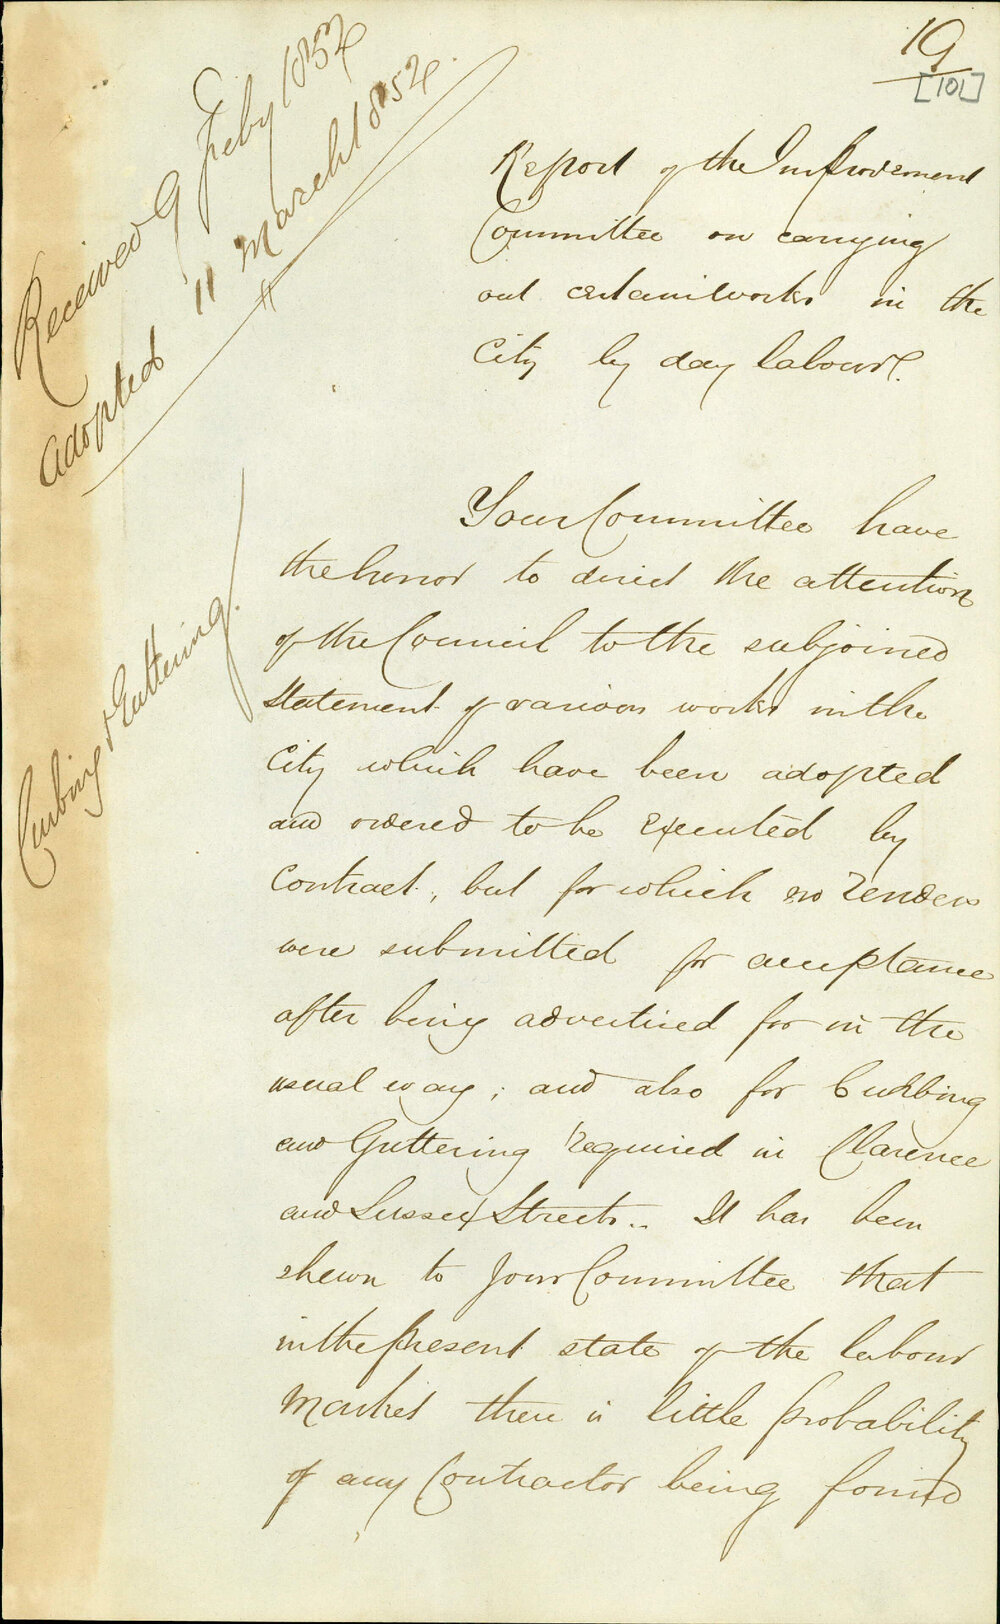 19
[101]
Received 9 Feby 1852
Adopted 11 March 1852.
Report of the Improvement
Committee on carrying
out certain works in the
City by day labour.
Curbing & Guttering.
Your Committee have
the honor to direct the attention
of the Council to the subjoined
Statement of various works in the
City which have been adopted
and ordered to be Executed by
Contract, but for which no Tenders
were submitted for acceptance
after being advertised for in the
usual way; and also for Curbing
and Guttering required in Clarence
and Sussex Streets.. It has been
shewn to your Committee that
in the present state of the labour
Market there is little probability
of any Contractor being found